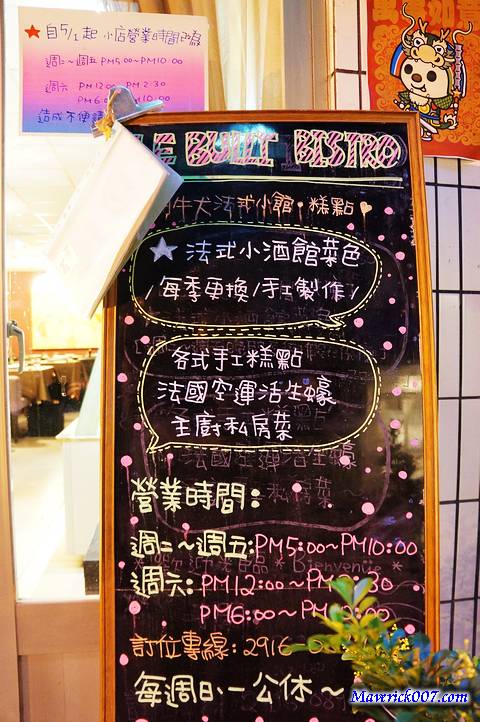 ★自5/1起 小店營業時間己為
週二~週五 PM5:00~PM10:00
週六 PM12:00~PM2:30
PM6:00~PM10:00
造成不便請
LE BULL BISTRO
牛犬法式小館・糕點
★法式小酒館菜色
/每季更換/手工製作/
各式手工糕點
法國空運活生蠔
主廚私房菜
法國空運活生蠔
營業時間:
週二~週五:PM5:00~PM10:00
Bienvenue *
週六:PM12:00~PM :30
PM6:00~PM :00
訂位專線:2916-
每週日、一公休~
Mawrick007.com